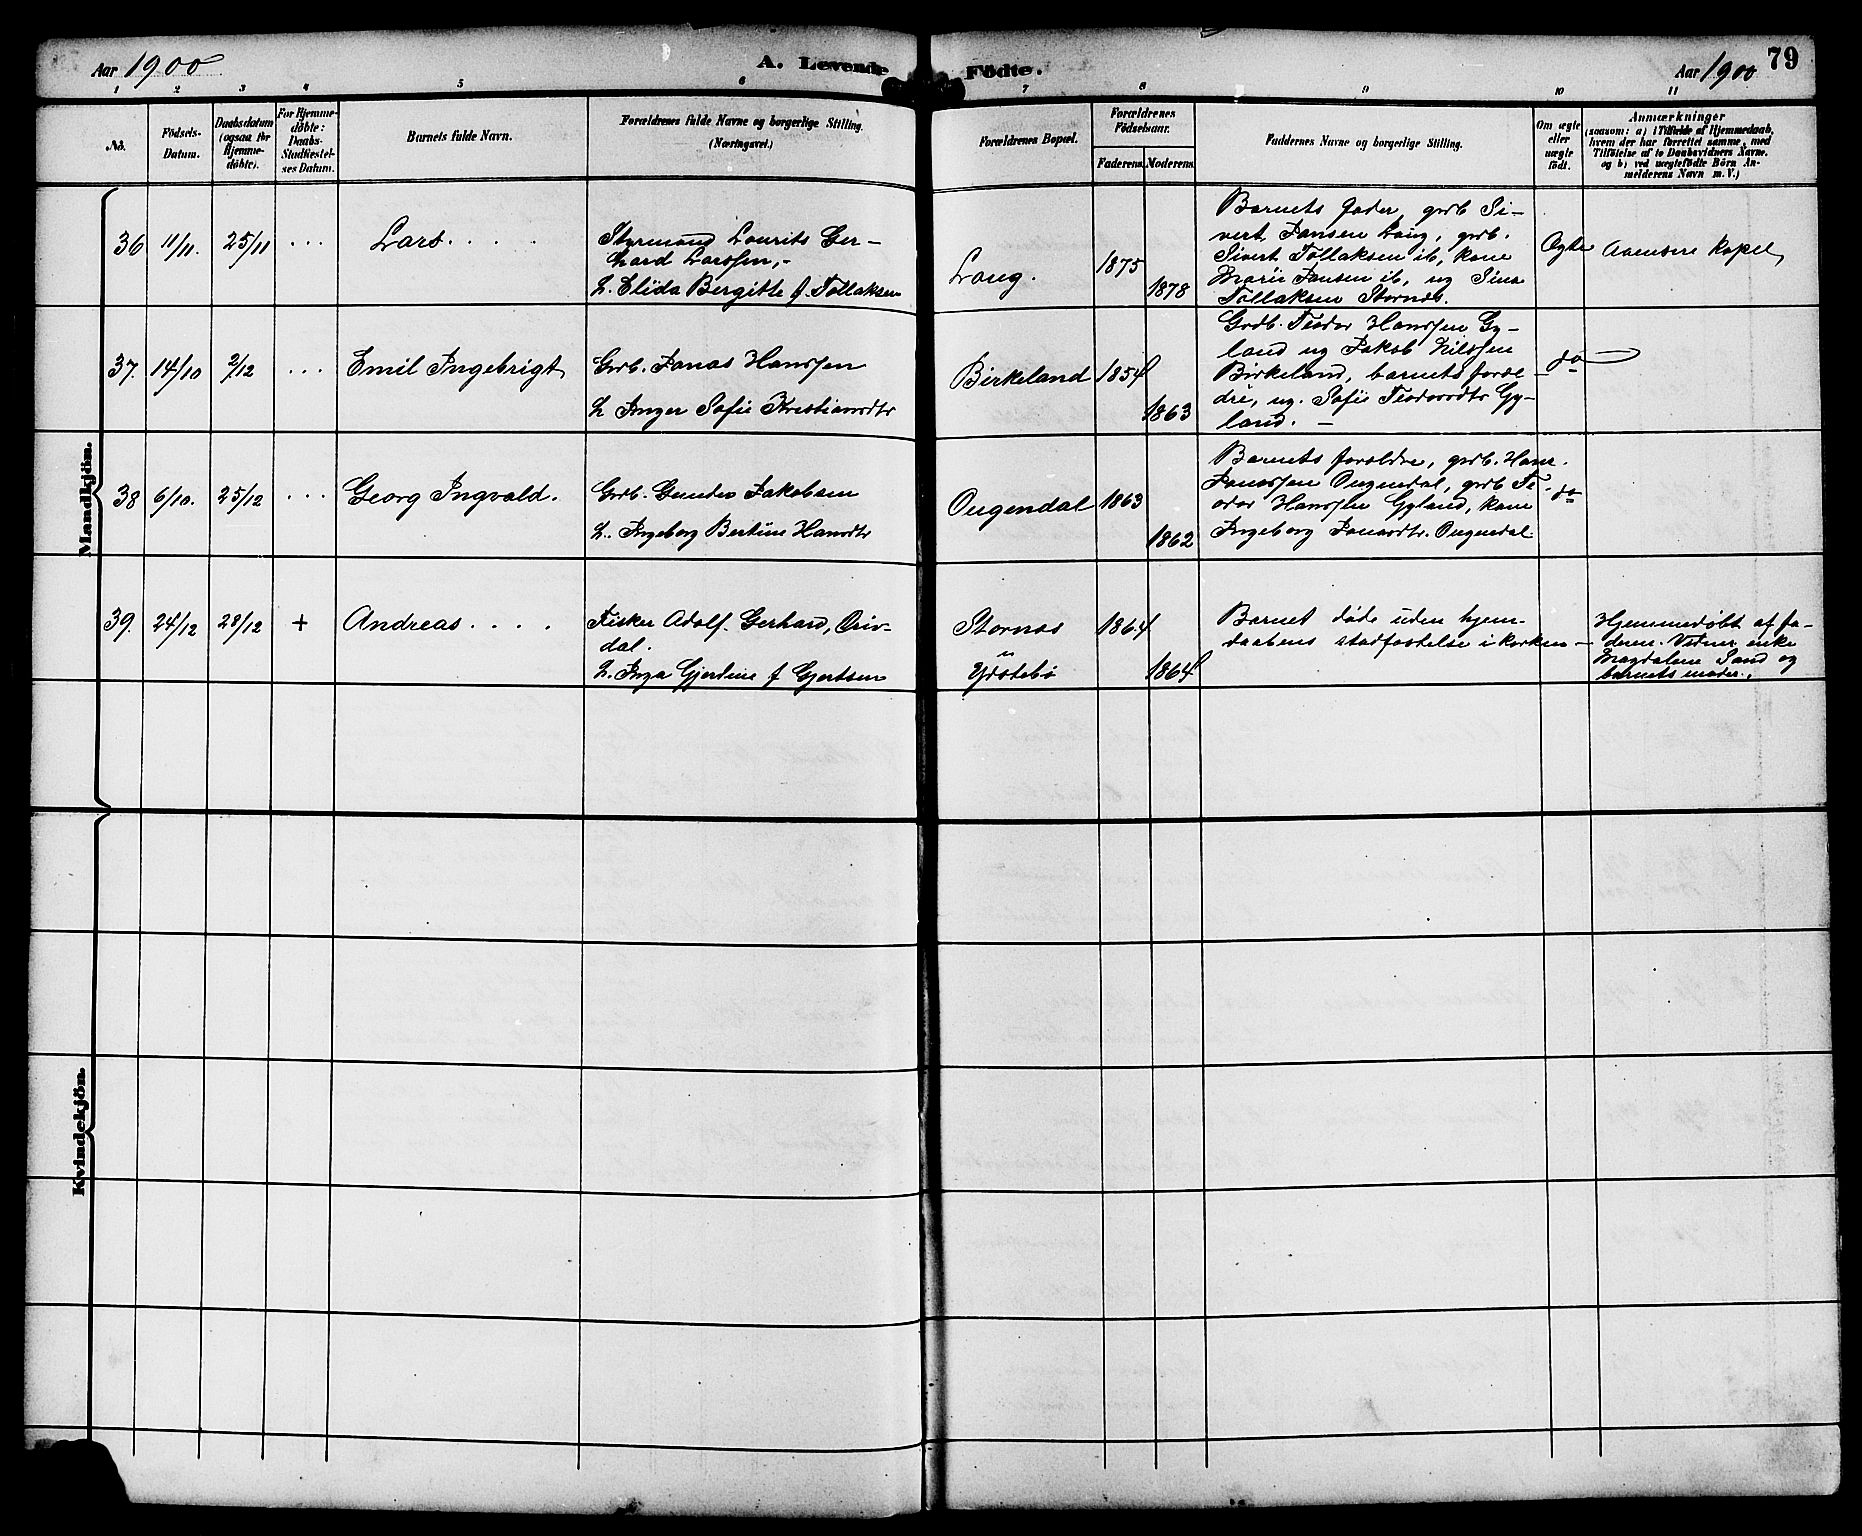 Aar 1900
A. Levende Födte.
Aar 1900
79
1 2 3 4 5 6 7 8 9 10 11
No.
Födsels-
Datum.
Daabsdatum
(ogsaa for
Hjemme-
döbte).
For Hjemme-
döbte:
Daabs-
Stadfæstel-
ses Datum.
Barnets fulde Navn.
Forældrenes fulde Navne og borgerlige Stilling.
(Næringsvei.)
Forældrenes Bopæl.
Forældrenes
Födselsaar.
Faderens.
Moderens.
Faddernes Navne og borgerlige Stilling.
Om ægte
eller
uægte
födt.
Anmærkninger
(saasom: a) i Tilfælde af Hjemmedaab,
hvem der har forrettet samme, med
Tilföielse af to Daabsvidners Navne.
og b) ved uægtefödte Börn An-
melderens Navn m. V.)
Mandkjön.
36 11/11. 25/11 . . . Lars . . . .
Styrmand Lourits Ger-
hard Larssen,-
H. Elida Bergitte f. Tollaksen
Laug.
1875
1878
Barnets fader, grdb Si-
vert Jansen Laug, grdb.
Sivert Tollaksen ib, kone
Marie Jansen ib, ug Sina
Tollaksen Stornes.
Ægte
Aamsere Kapel
37. 14/10 2/12 . . . Emil Ingebrigt
Grdb. Jonas Hanssen
H Inger Sofie Kristiansdtr
Birkeland
1854
1863
Grdb. Teodor Hanssen Gy-
land ug Jakob Nilssen
Birkeland, barnets foræl-
dre, ug. Sofie Teodorsdtr Gy-
land. -
do
38 6/10. 25/12 . . . Georg Ingvald.
Grdb. Gunder Jakobsen
H. Ingeborg Bertine Hansdtr
Ougendal
1863
1862
Barnets foreldre, grdb. Hans
Jonassen Ougendal, grdb Te-
odor Hanssen Gyland, kone
Ingeborg Jonasdtr. Ougendal
do
39. 24/12 28/12 + Andreas . . . .
Fisker Adolf Gerhard, Osiv-
dal.
H. Inga Gjerdine f Gjertsen
Stornes
Ystebø
1864
1864
Barnet døde uden hjem-
daabens stadfæstelse i kirken -
Hjemmedøbt af fa-
deren. Vidner enke
Magdalene Sand og
barnets moder.
Kvindekjön.